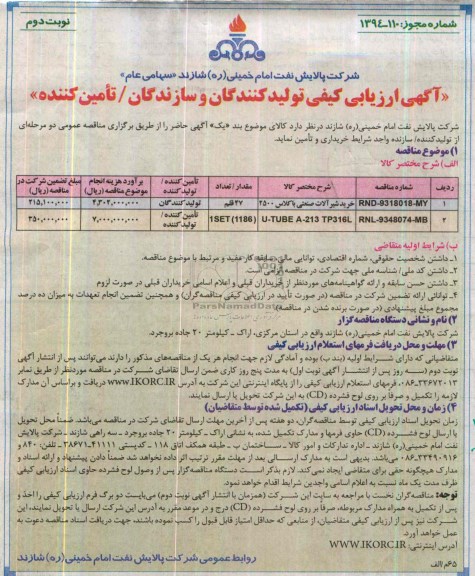 شماره مجوز: ۱۳۹۴-۱۱۰
نوبت دوم
شرکت پالایش نفت امام خمینی(ره) شازند «سهامی عام»
«آگهی ارزیابی کیفی تولیدکنندگان و سازندگان / تأمین کننده»
شرکت پالایش نفت امام خمینی(ره) شازند درنظر دارد کالای موضوع بند «یک» آگهی حاضر را از طریق برگزاری مناقصه عمومی دو مرحله‌ای
از تولیدکننده/ سازنده واجد شرایط خریداری و تأمین نماید.
۱) موضوع مناقصه
الف) شرح مختصر کالا
ردیف شماره مناقصه شرح مختصر کالا مقدار / تعداد تأمین کننده / تولید کننده برآورد هزینه انجام موضوع مناقصه (ریال) مبلغ تضمین شرکت در مناقصه (ریال)
۱ RND-9318018-MY خرید شیرآلات صنعتی با کلاس ۲۵۰۰ ۲۷ قلم تولیدکنندگان ۴,۳۰۲,۰۰۰,۰۰۰ ۲۱۵,۱۰۰,۰۰۰
۲ RNL-9348074-MB U-TUBE A-213 TP316L 1SET (1186) تأمین کننده / تولید کننده ۷,۰۰۰,۰۰۰,۰۰۰ ۳۵۰,۰۰۰,۰۰۰
ب) شرایط اولیه متقاضی
۱ـ داشتن شخصیت حقوقی، شماره اقتصادی، توانایی مالی، سابقه کار مفید و مرتبط با موضوع مناقصه.
۲ـ داشتن کد ملی/ شناسه ملی جهت شرکت در مناقصه الزامی است.
۳ـ داشتن حسن سابقه و ارائه گواهینامه‌های موردنظر از خریداران قبلی و اعلام اسامی خریداران قبلی در صورت لزوم
۴ـ توانائی ارائه تضمین شرکت در مناقصه (در صورت تأیید در ارزیابی کیفی مناقصه‌گران) و همچنین تضمین انجام تعهدات به میزان ده درصد
مجموع مبلغ پیشنهادی (در صورت برنده شدن در مناقصه).
۲) نام و نشانی دستگاه مناقصه گزار
شرکت پالایش نفت امام خمینی(ره) شازند واقع در استان مرکزی، اراک ـ کیلومتر ۲۰ جاده بروجرد.
۳) مهلت و محل دریافت فرمهای استعلام ارزیابی کیفی
متقاضیانی که دارای شرایط اولیه (بند ب) بوده و آمادگی لازم جهت انجام هر یک از مناقصه‌های مذکور را دارند می‌توانند پس از انتشار آگهی
نوبت دوم (سه روز پس از انتشار آگهی نوبت اول) به مدت پنج روز کاری ضمن ارسال تقاضای شرکت در مناقصه موردنظر از طریق نمابر
۰۸۶-۳۳۶۷۲۰۱۳، فرمهای استعلام ارزیابی کیفی را از پایگاه اینترنتی این شرکت به آدرس WWW.IKORC.IR دریافت و براساس آن مدارک
لازمه را تکمیل و صرفاً بر روی لوح فشرده (CD) به این شرکت تحویل یا ارسال نمایند.
۴) زمان و محل تحویل اسناد ارزیابی کیفی (تکمیل شده توسط متقاضیان)
زمان تحویل اسناد ارزیابی کیفی توسط مناقصه‌گران، دو هفته پس از آخرین مهلت ارسال تقاضای شرکت در مناقصه می‌باشد. ضمناً محل تحویل
یا ارسال لوح فشرده (CD) حاوی فرمها و مدارک تکمیل شده، به نشانی اراک ـ کیلومتر ۲۰ جاده بروجرد ـ سه راهی شازند ـ شرکت پالایش
نفت امام خمینی(ره) شازند ـ اداره تدارکات و امور کالا ـ ساختمان ب ـ طبقه همکف اتاق ۱۱۸ ـ کدپستی ۴۱۱۱۱-۳۸۶۷۱ ـ تلفن: ۸۴۰ و
۰۸۶-۳۳۴۹۰۹۱۶ می‌باشد. بدیهی است به مدارک ارسالی بعد از مهلت مقرر ترتیب اثر داده نخواهد شد ضمناً دادن پیشنهاد و ارائه اسناد و
مدارک هیچگونه حقی برای متقاضی ایجاد نمی‌کند. لازم بذکر است دستگاه مناقصه‌گزار پس از وصول لوح فشرده حاوی اسناد ارزیابی کیفی
ظرف مدت یک ماه نسبت به اعلام اسامی واجدین شرایط اقدام خواهد نمود.
توجه: مناقصه‌گران نخست با مراجعه به سایت این شرکت (همزمان با انتشار آگهی نوبت دوم) می‌بایست دو برگ فرم ارزیابی کیفی را اخذ و
پس از تکمیل به همراه مدارک مربوطه، صرفاً بر روی لوح فشرده (CD) درج و در موعد مقرر به آدرس این شرکت ارسال یا تحویل نمایند، این
شرکت نیز پس از ارزیابی کیفی متقاضیان، از منابعی که حداقل امتیاز قابل قبول را کسب نموده باشند، جهت دریافت اسناد مناقصه دعوت به
عمل خواهد آورد.
آدرس اینترنتی: WWW.IKORC.IR
روابط عمومی شرکت پالایش نفت امام خمینی(ره) شازند
۶۵م/الف